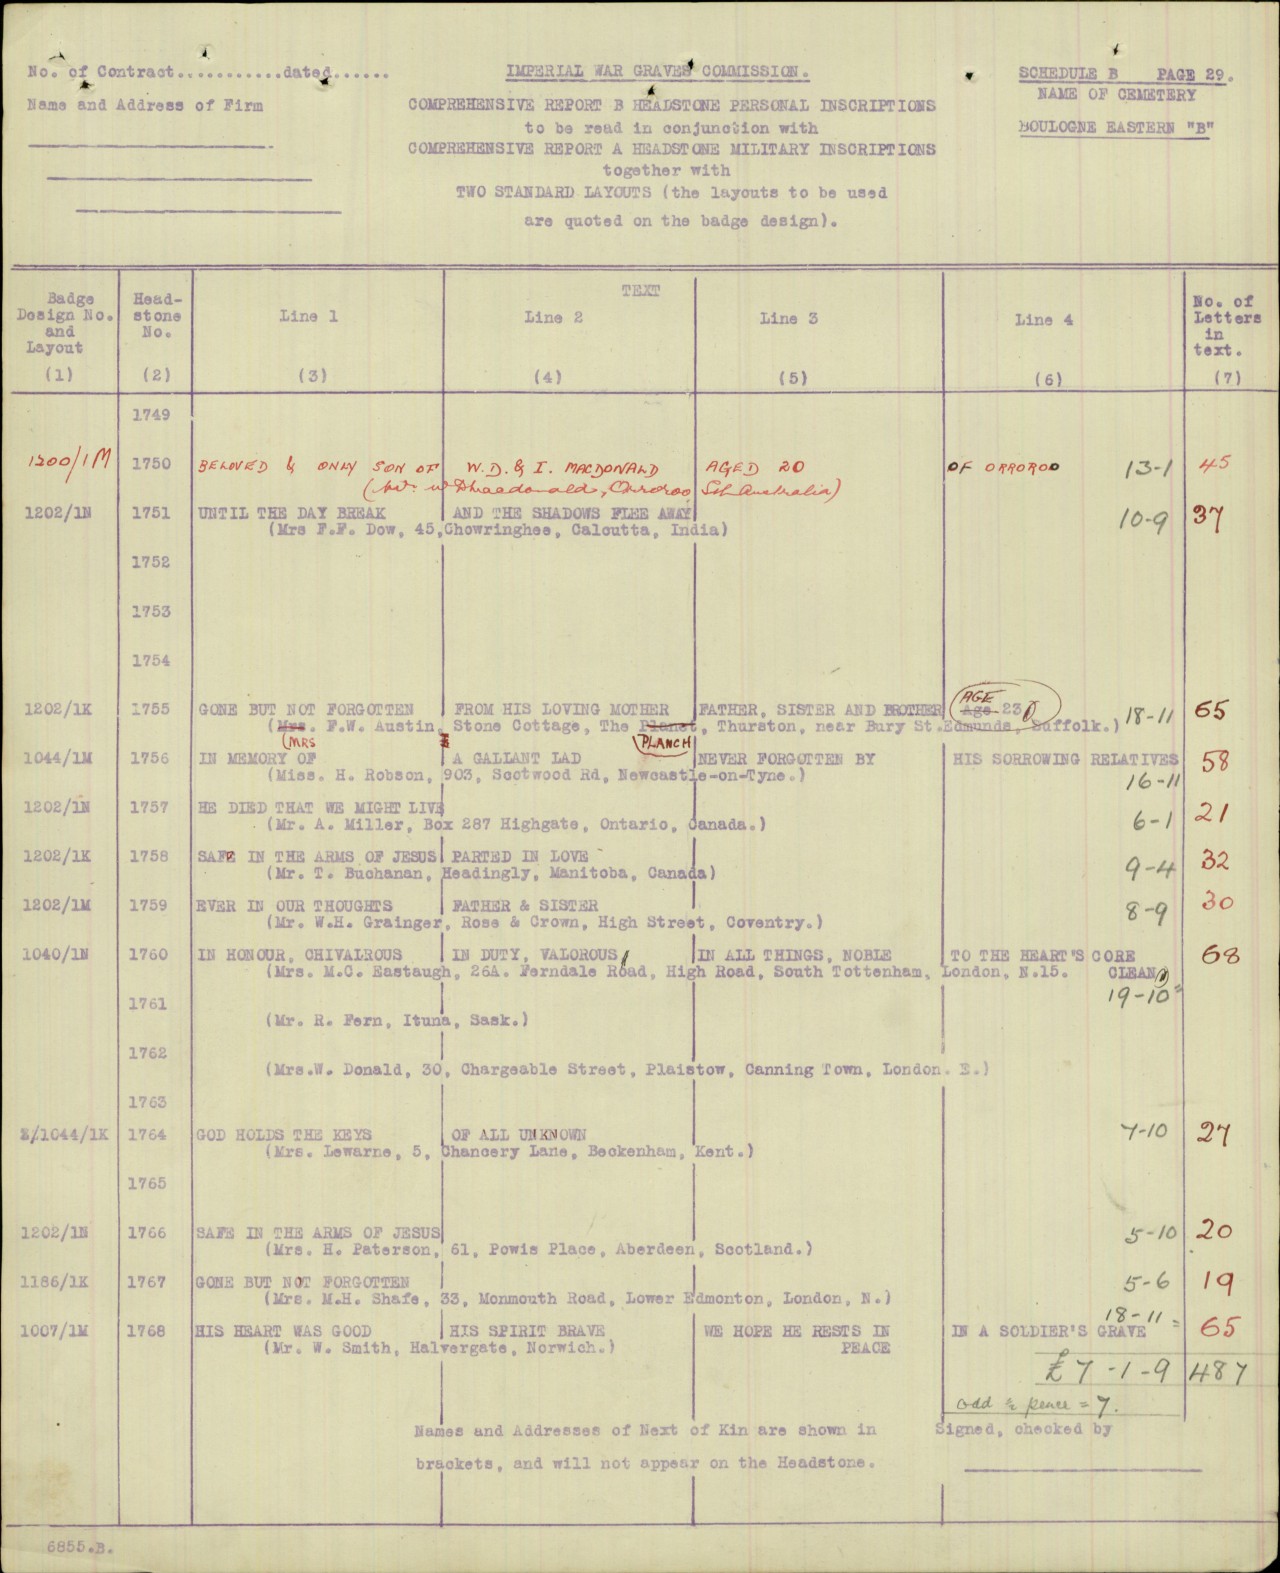 No. of Contract............dated......
Name and Address of Firm
IMPERIAL WAR GRAVES COMMISSION.
COMPREHENSIVE REPORT B HEADSTONE PERSONAL INSCRIPTIONS
to be read in conjunction with
COMPREHENSIVE REPORT A HEADSTONE MILITARY INSCRIPTIONS
together with
TWO STANDARD LAYOUTS (the layouts to be used
are quoted on the badge design).
SCHEDULE B PAGE 29.
NAME OF CEMETERY
BOULOGNE EASTERN "B"
Badge Design No. and Layout (1)
Head-stone No. (2)
TEXT
Line 1 (3)
Line 2 (4)
Line 3 (5)
Line 4 (6)
No. of Letters in text. (7)
1749
1200/1M 1750 BELOVED & ONLY SON OF W.D. & I. MACDONALD AGED 20 OF ORROROO 13-1 45
Macdonald, Orroroo Sth Australia)
1202/1N 1751 UNTIL THE DAY BREAK AND THE SHADOWS FLEE AWAY 10-9 37
(Mrs F.F. Dow, 45,Chowringhee, Calcutta, India)
1752
1753
1754
1202/1K 1755 GONE BUT NOT FORGOTTEN FROM HIS LOVING MOTHER FATHER, SISTER AND BROTHER AGE Age 23 18-11 65
(Mrs. F.W. Austin, Stone Cottage, The Planet, Thurston, near Bury St.Edmunds, Suffolk.)
(MRS PLANCH
1044/1M 1756 IN MEMORY OF A GALLANT LAD NEVER FORGOTTEN BY HIS SORROWING RELATIVES 58
(Miss. H. Robson, 903, Scotwood Rd, Newcastle-on-Tyne.) 16-11
1202/1N 1757 HE DIED THAT WE MIGHT LIVE 6-1 21
(Mr. A. Miller, Box 287 Highgate, Ontario, Canada.)
1202/1K 1758 SAFE IN THE ARMS OF JESUS PARTED IN LOVE 9-4 32
(Mr. T. Buchanan, Headingly, Manitoba, Canada)
1202/1M 1759 EVER IN OUR THOUGHTS FATHER & SISTER 8-9 30
(Mr. W.H. Grainger, Rose & Crown, High Street, Coventry.)
1040/1N 1760 IN HONOUR, CHIVALROUS IN DUTY, VALOROUS, IN ALL THINGS, NOBLE TO THE HEART'S CORE 68
(Mrs. M.C. Eastaugh, 26A. Ferndale Road, High Road, South Tottenham, London, N.15. CLEAN
19-10
1761
(Mr. R. Fern, Ituna, Sask.)
1762
(Mrs.W. Donald, 30, Chargeable Street, Plaistow, Canning Town, London. E.)
1763
Z/1044/1K 1764 GOD HOLDS THE KEYS OF ALL UNKNOWN 7-10 27
(Mrs. Lewarne, 5, Chancery Lane, Beckenham, Kent.)
1765
1202/1N 1766 SAFE IN THE ARMS OF JESUS 5-10 20
(Mrs. H. Paterson, 61, Powis Place, Aberdeen, Scotland.)
1186/1K 1767 GONE BUT NOT FORGOTTEN 5-6 19
(Mrs. M.H. Shafe, 33, Monmouth Road, Lower Edmonton, London, N.)
18-11
1007/1M 1768 HIS HEART WAS GOOD HIS SPIRIT BRAVE WE HOPE HE RESTS IN IN A SOLDIER'S GRAVE 65
(Mr. W. Smith, Halvergate, Norwich.) PEACE
£7-1-9 487
odd ½ pence = 7.
Names and Addresses of Next of Kin are shown in
Signed, checked by
brackets, and will not appear on the Headstone.
6855.B.